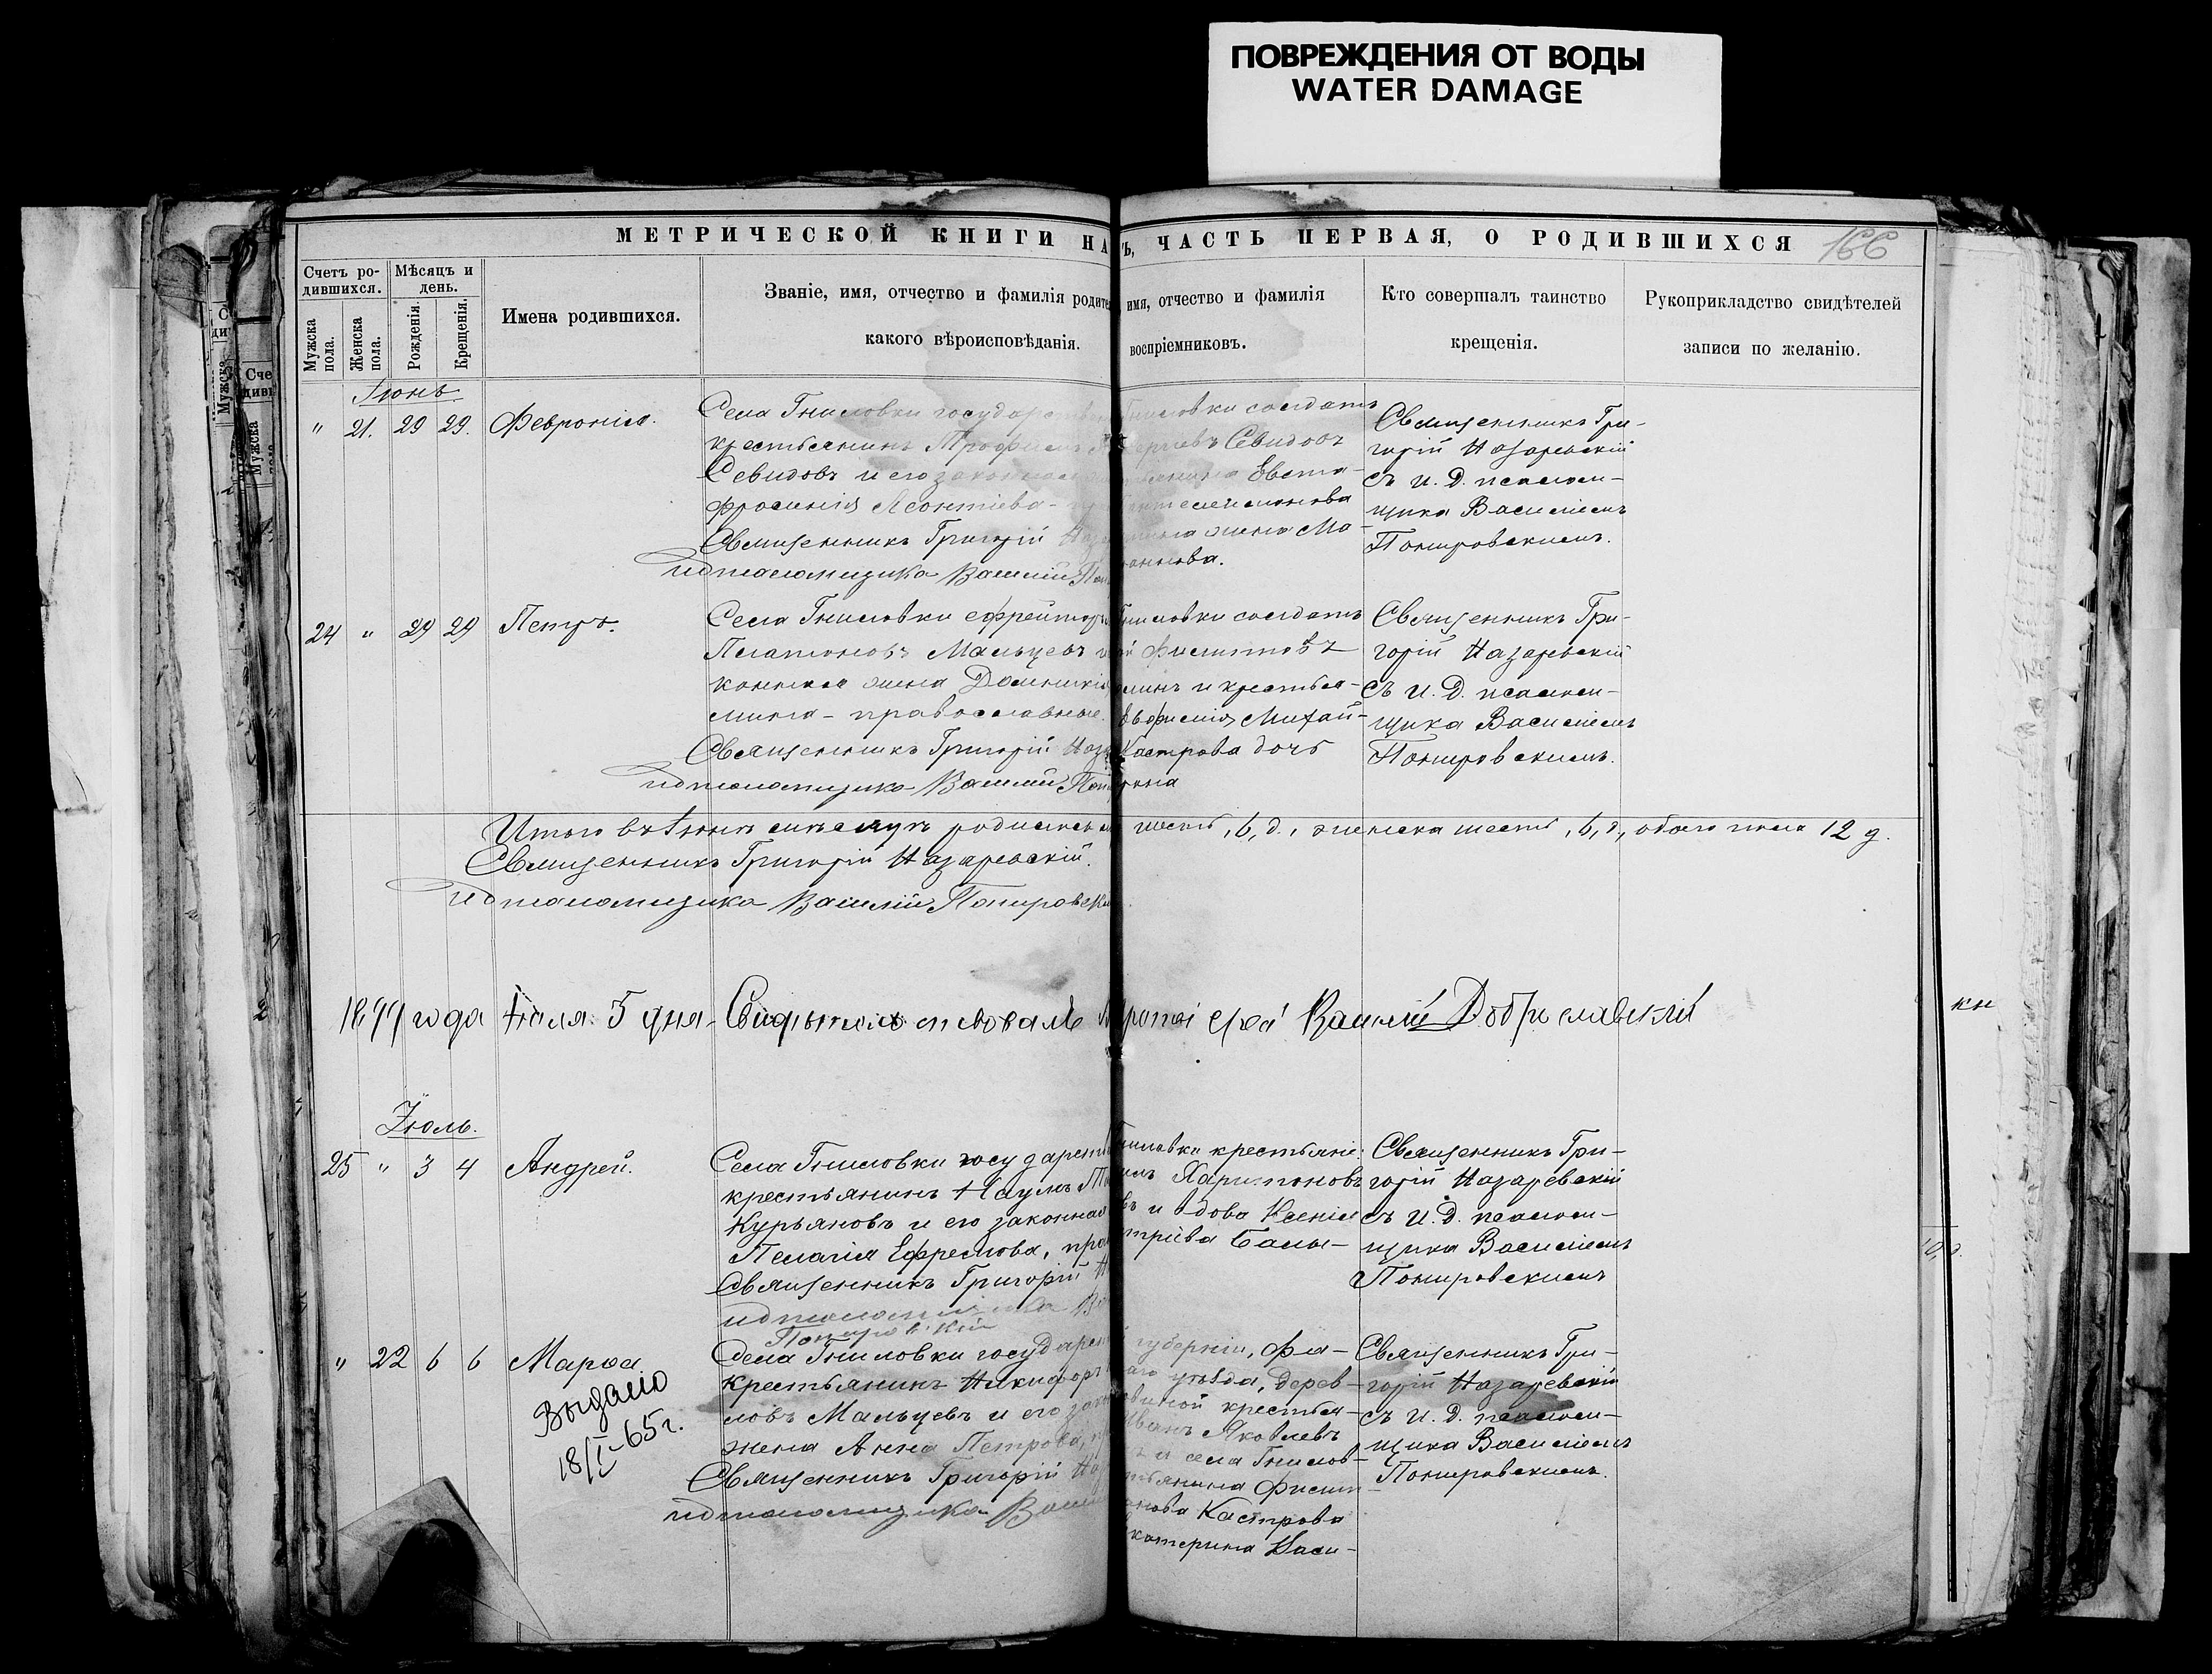 ПОВРЕЖДЕНИЯ ОТ ВОДЫ
WATER DAMAGE
МЕТРИЧЕСКОЙ КНИГИ НА
Ъ, ЧАСТЬ ПЕРВАЯ, О РОДИВШИХСЯ
166
Счетъ ро-
дившихся.
Мѣсяцъ и
день.
Мужска
пола.
Женска
пола.
Рожденія.
Крещенія.
Имена родившихся.
Званіе, имя, отчество и фамилія родите
какого вѣроисповѣданія.
имя, отчество и фамилія
воспріемниковъ.
Кто совершалъ таинство
крещенія.
Рукоприкладство свидѣтелей
записи по желанію.
Іюнь
" 21. 29 29. Февронія.
Села Гниловки государ
крестьянинъ Трофимъ
Севидовъ и его законная
фросинія Леонтіева -
Священникъ Григорій Наза
и д псаломщика Василій Пон
солдатъ
Севидовъ
Евста-
жена Ма-
Священникъ Гри-
горій Назаревскій
съ и. д. псалом-
щика Василіемъ
Понировскимъ.
24 " 29 29 Петръ.
Села Гниловки ефрейтор
Платоновъ Мальцевъ и
конная жена Домникія
мина - православные.
Священникъ Григорій Наза
и д псаломщика Василій Пон
ниловки солдатъ
й Филиповъ
и крестья-
Евфимія Михай-
Кастрова дочь
Священникъ Гри-
горій Назаревскій
съ и. д. псалом-
щика Василіемъ
Понировскимъ.
Итого въ Іюнѣ мѣсяцѣ родилось м
шесть, 6, д., женска шесть, 6, д, обоего пола 12 д.
Священникъ Григорій Назаревскій.
и д псаломщика Василій Понировскі
года Іюля 5 дня Свидѣтельствовалъ Протоіерей Василій Доброславскій
кн
Іюль.
25 " 3 4 Андрей.
Села Гниловки государств
крестьянинъ Наумъ
Курьяновъ и его законная
Пелагія Ефремова, пра
Священникъ Григорій Н
и д псаломщика Ва
Понировскій
ниловки крестьяне:
Харитоновъ
въ и вдова Ксенія
трієва Балы-
Священникъ Гри-
горій Назаревскій
съ и. д. псалом-
щика Василіемъ
Понировскимъ
" 22 6 6 Марѳа
Выдано
18/I-65г.
Села Гниловки государст
крестьянинъ Никифоръ
ловъ Мальцевъ и его зако
жена Анна Петрова,
Священникъ Григорій Наз
и д псаломщика Васи
губерніи, Фа-
аго уѣзда, дерев-
крестья-
Иванъ Яковлевъ
и села Гнилов-
Филип-
онова Кастрова
катерина Васи-
Священникъ Гри-
горій Назаревскій
съ и. д. псалом-
щика Василіемъ
Понировскимъ.